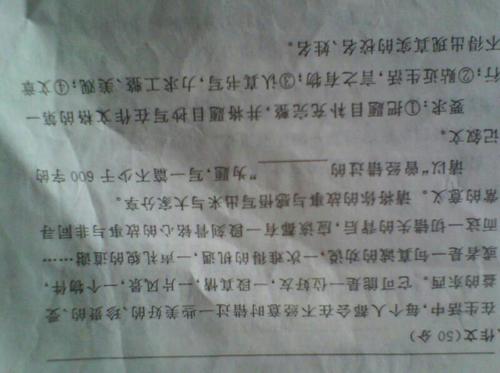 作文(50 分)
在生活中,每个人都会在不经意时错过一些美好的、珍贵的、爱
的东西。它可能是一位好友,一段真情,一片风景,一个物件,
或者是一句真诚的劝说,一次难得的机遇,一声礼貌的道谢……
而这一切错失的背后,应该都有一段刻骨铭心的故事与非同寻
常的意义。请将你的故事与感悟写出来与大家分享。
请以“曾经错过的________”为题,写一篇不少于 600 字的
记叙文。
要求:①把题目补充完整,并将题目抄写在作文格的第一
行;②贴近生活,言之有物;③认真书写,力求工整、美观;④文章
不得出现真实的校名、姓名。